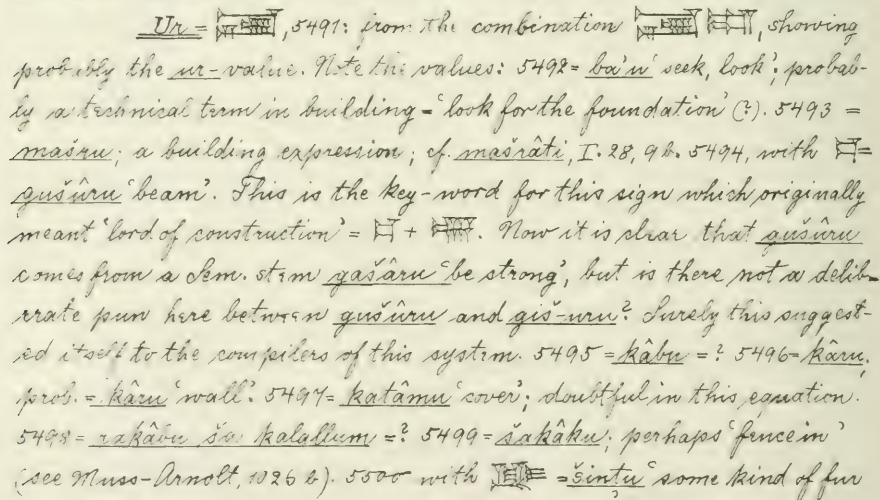 Ur = , 5491: from the combination , showing
probably the ur-value. Note the values: 5492 = ba'u 'seek, look'; probab-
ly a technical term in building - 'look for the foundation' (?). 5493 =
mašru; a building expression; cf. mašrâti, I. 28, 9b. 5494, with =
gušûru 'beam'. This is the key-word for this sign which originally
meant 'lord of construction' = + . Now it is clear that gušûru
comes from a Sem. stem gašâru 'be strong', but is there not a delib-
erate pun here between gušûru and giš-uru? Surely this suggest-
ed itself to the compilers of this system. 5495 = kâbu = ? 5496 = kâru,
prob. = kâru 'wall'. 5497 = katâmu 'cover'; doubtful in this equation.
5498 = rakâbu ša kalallum = ? 5499 = šakâku; perhaps 'fence in'
(see Muss-Arnolt, 1026 b). 5500 with = šintu 'some kind of fur